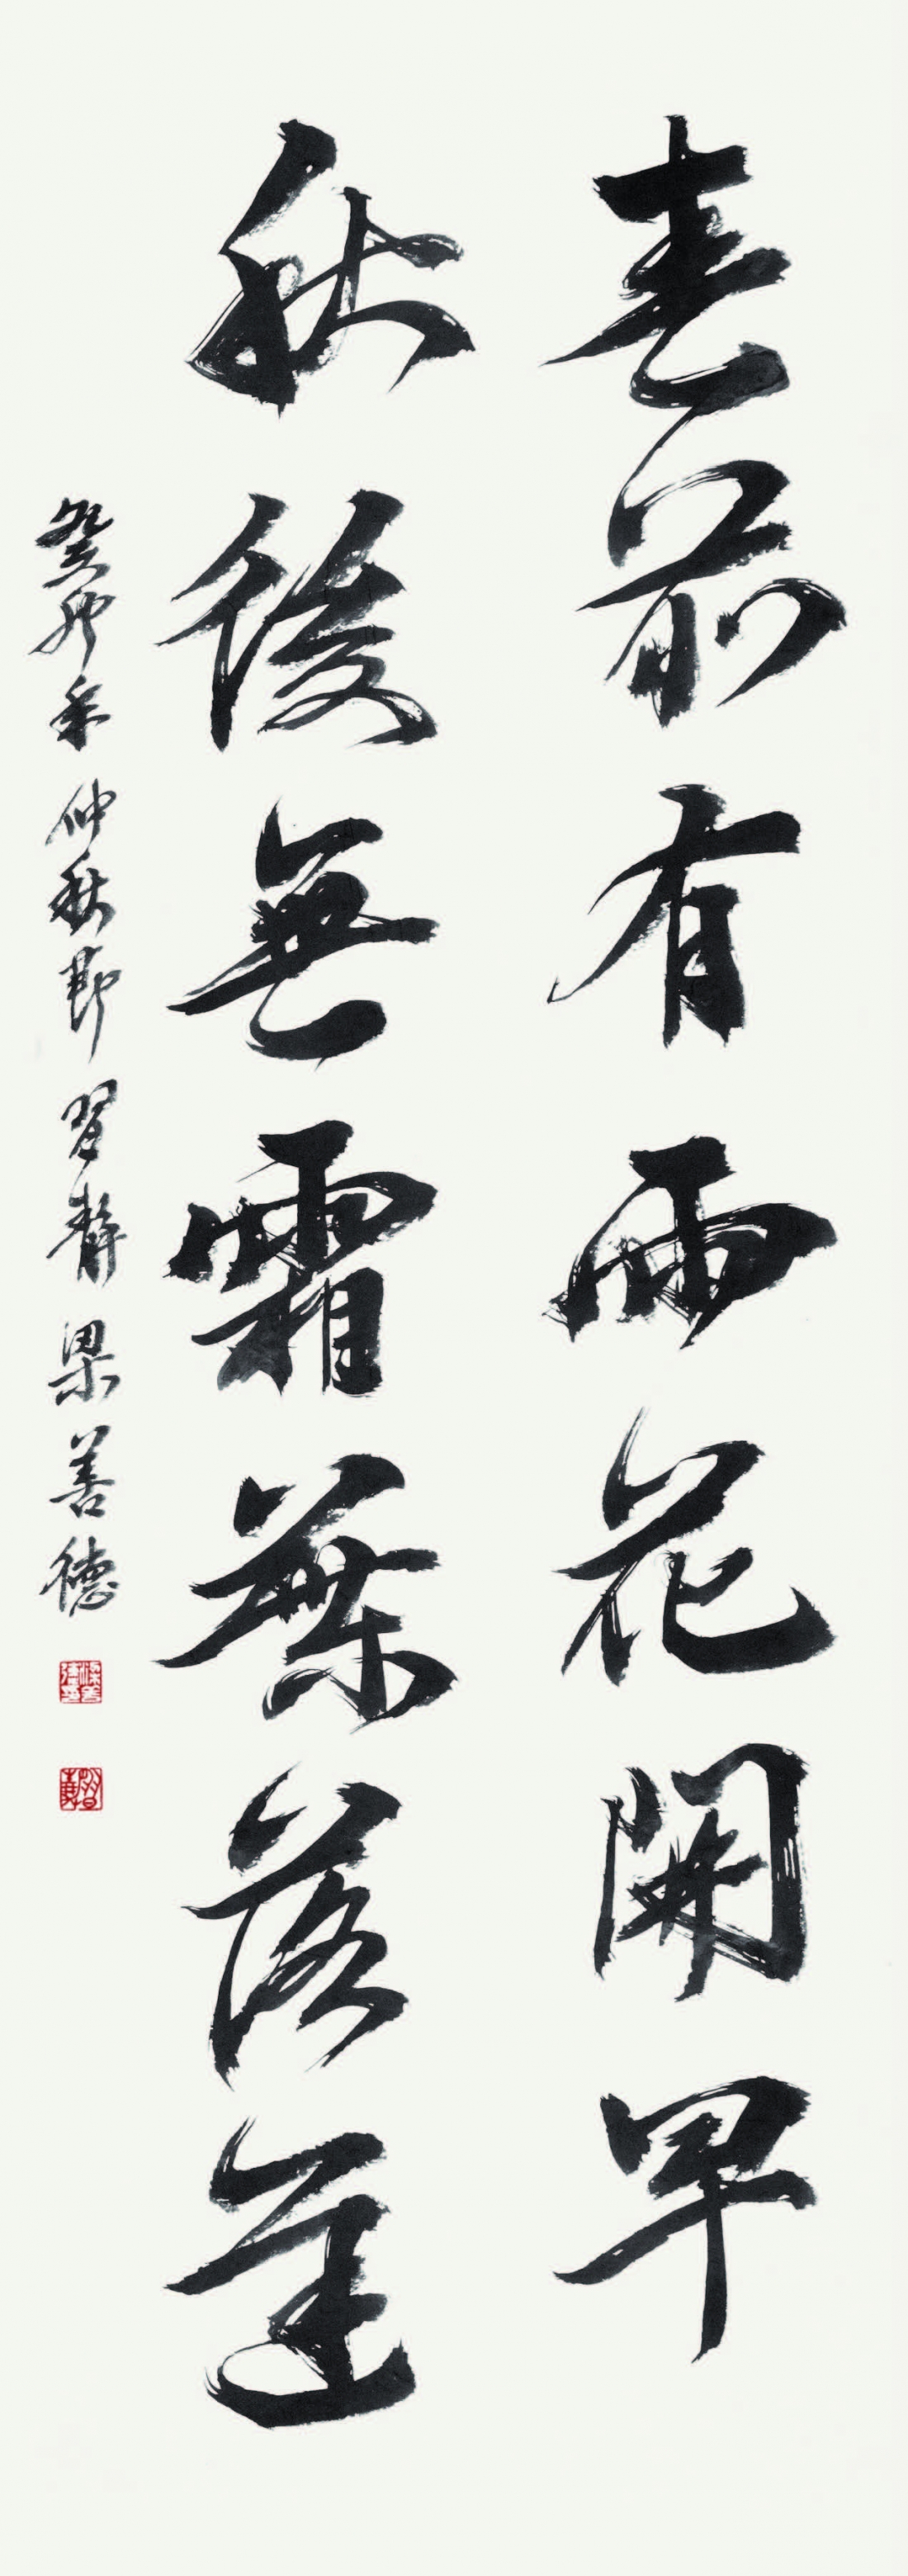 春前有雨花開早
秋後無霜葉落遲
癸卯年仲秋節習靜梁善德